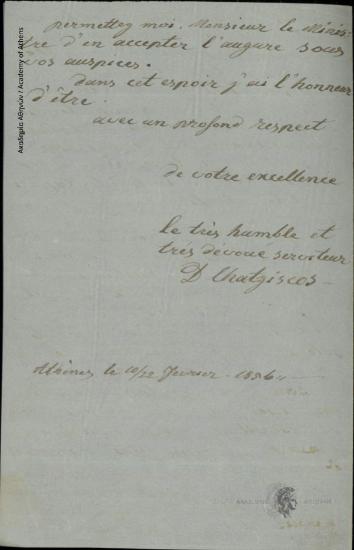 permettez moi. Monsieur le Minis-
tre d'en accepter l'augure sous
vos auspices.
dans cet espoir j'ai l'honneur
d'être
avec un profond respect
de votre excellence
le très humble et
très dévoué serviteur
D Chatgiscos
Athènes le 10/22 fevrier 1856
Ακαδημία Αθηνών / Academy of Athens